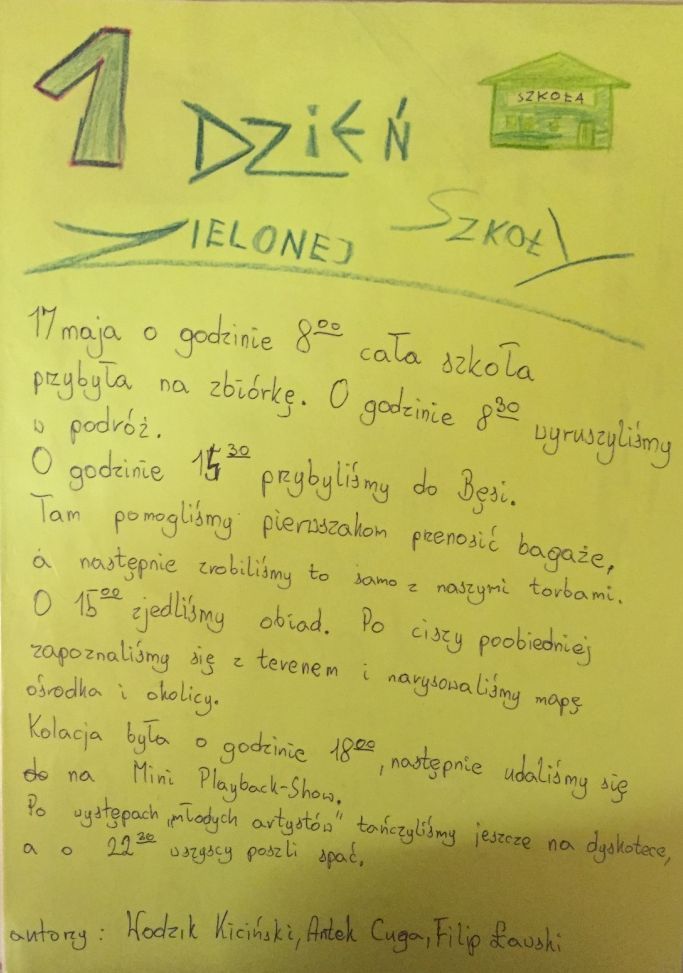 1 DZIEŃ
SZKOŁA
ZIELONEJ SZKOŁY
17 maja o godzinie 8⁰⁰ cała szkoła
przybyła na zbiórkę. O godzinie 8³⁰ wyruszyliśmy
w podróż.
O godzinie ³⁰ przybyliśmy do Bęsi.
Tam pomogliśmy pierwszakom przenosić bagaże,
a następnie zrobiliśmy to samo z naszymi torbami.
O 15⁰⁰ zjedliśmy obiad. Po ciszy poobiedniej
zapoznaliśmy się z terenem i narysowaliśmy mapę
ośrodka i okolicy.
Kolacja była o godzinie 18⁰⁰, następnie udaliśmy się
do na Mini Playback-Show.
Po występach „młodych artystów” tańczyliśmy jeszcze na dyskotece,
a o 22³⁰ wszyscy poszli spać.
autorzy: Wodzik Kiciński, Antek Cuga, Filip Ławski